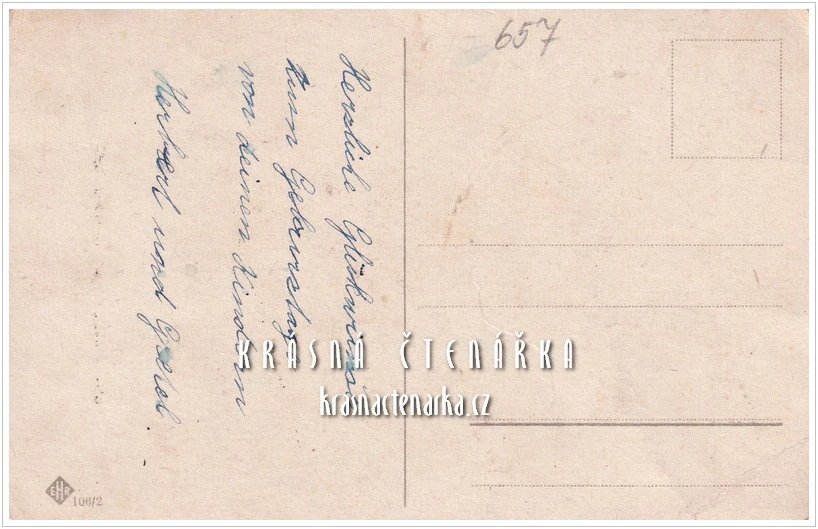 657
Herzliche Glückwünsche
zum Geburtstag
von deinen Kindern
Herbert und
KRÁSNÁ ČTENÁŘKA
krasnactenarka.cz
EHR
106/2